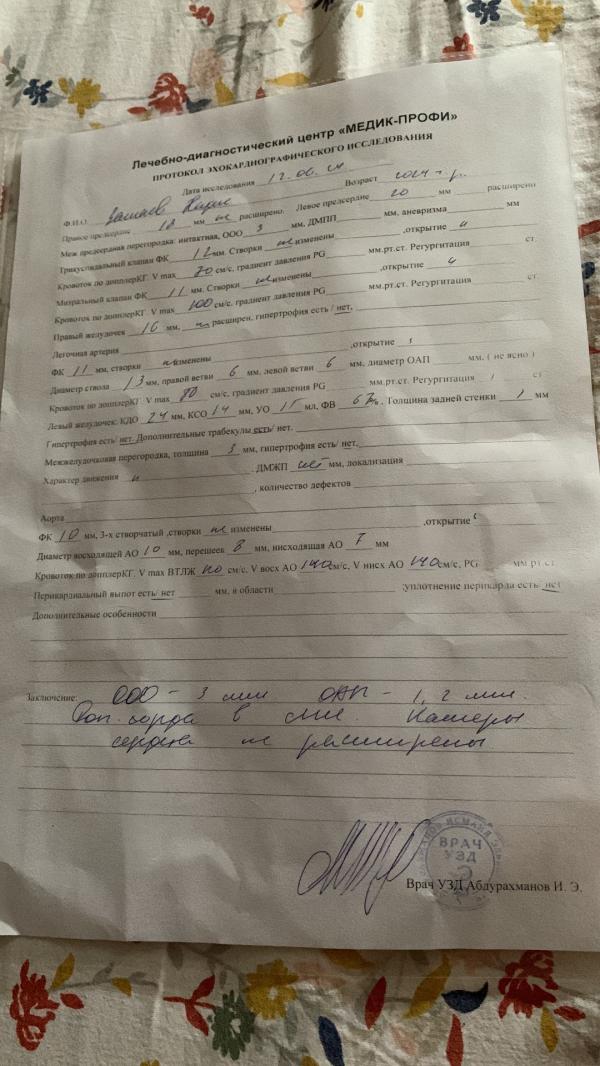 Лечебно-диагностический центр «МЕДИК-ПРОФИ»
ПРОТОКОЛ ЭХОКАРДИОГРАФИЧЕСКОГО ИССЛЕДОВАНИЯ
Дата исследования 12.06.24 Возраст 2024 г.р.
Ф.И.О.
Правое предсерие 18 мм не расширено. Левое предсердие 20 мм расширено
Меж предсердная перегородка: интактная, ООО 3 мм, ДМПП мм, аневризма мм
Трикуспидальный клапан ФК 12 мм. Створки не изменены ,открытие
Кровоток по допплерКГ. V max 70 см/с, градиент давления PG мм.рт.ст. Регургитация ст.
Митральный клапан ФК 11 мм. Створки не изменены ,открытие
Кровоток по допплерКГ. V max 100 см/с, градиент давления PG мм.рт.ст. Регургитация ст.
Правый желудочек 16 мм, расширен, гипертрофия есть/ нет,
Легочная артерия
ФК 11 мм, створки не изменены ,открытие
Диаметр ствола 13 мм, правой ветви 6 мм, левой ветви 6 мм, диаметр ОАП мм, ( не ясно )
Кровоток по допплерКГ. V max 80 см/с, градиент давления PG мм.рт.ст. Регургитация ст.
Левый желудочек: КДО 24 мм, КСО 14 мм, УО мл, ФВ 67%. Толщина задней стенки мм
Гипертрофия есть/ нет. Дополнительные трабекулы есть/ нет.
Межжелудочковая перегородка, толщина 3 мм, гипертрофия есть/ нет,
Характер движения . ДМЖП нет мм, локализация
, количество дефектов
Аорта
ФК 10 мм, 3-х створчатый ,створки не изменены ,открытие
Диаметр восходящей АО 10 мм, перешеек 8 мм, нисходящая АО 7 мм
Кровоток по допплерКГ. V max ВТЛЖ см/с, V восх АО 140 см/с, V нисх АО 140 см/с, PG мм рт.ст.
Перикардиальный выпот есть/ нет мм, в области ;уплотнение перикарда есть/ нет
Дополнительные особенности
Заключение: ООО - 3 мм ОАП - 1,2 мм.
Доп. хорда в ЛЖ. Камеры
сердца не расширены
ВРАЧ
УЗД
Врач УЗД Абдурахманов И. Э.